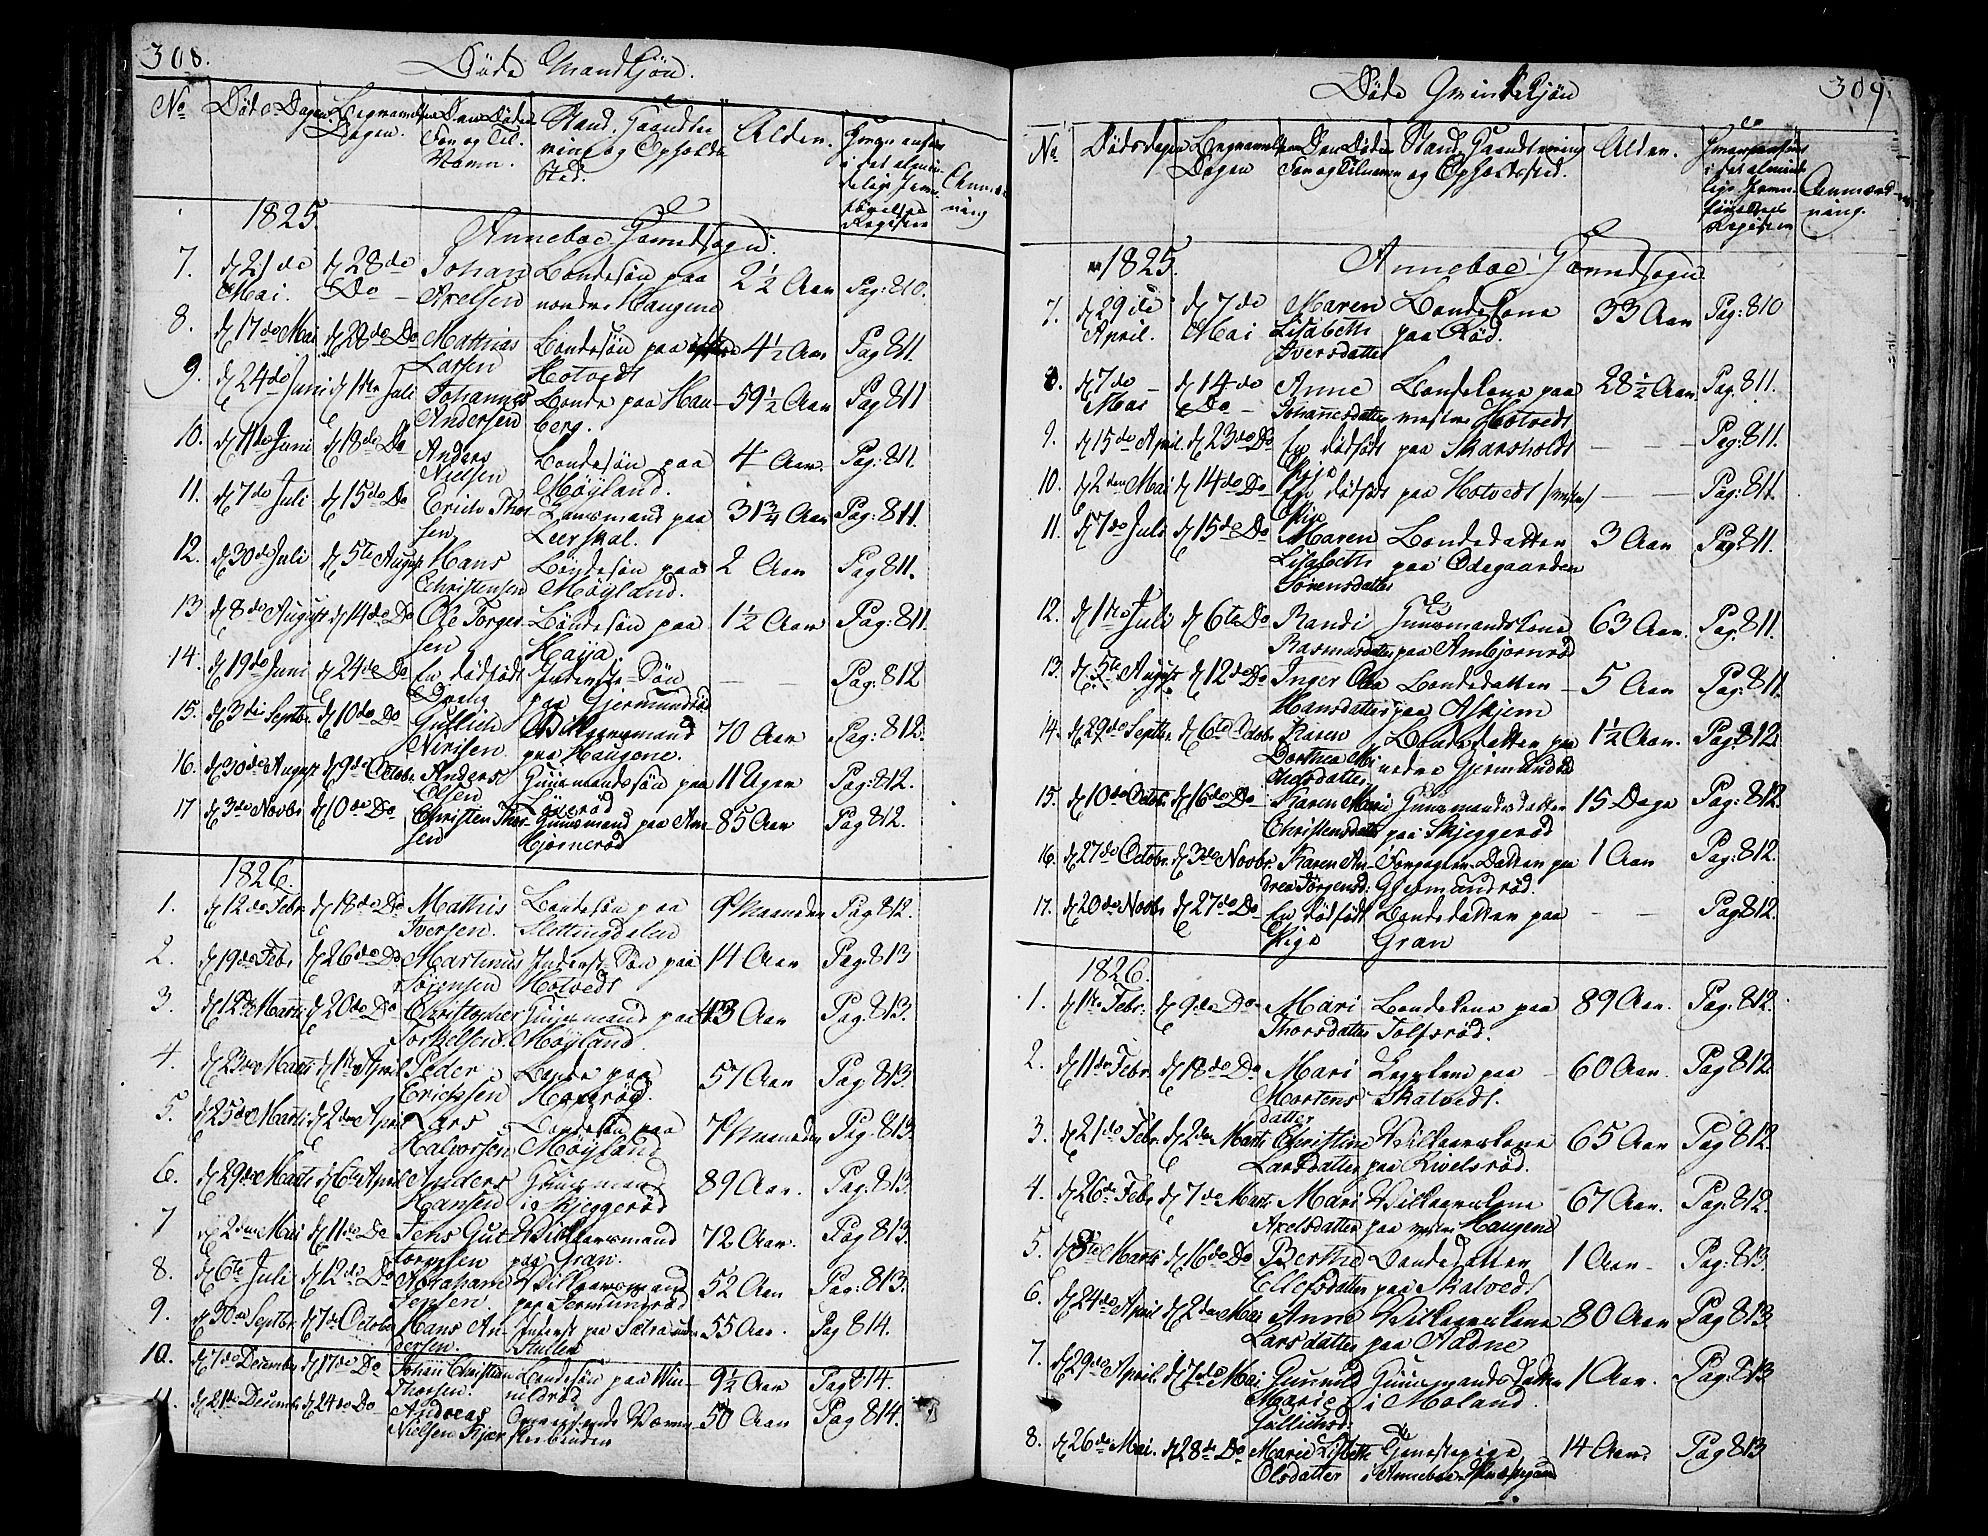 308.
Døde Mandkjøn.
No Døds Dagen Begravelses Dagen. Den Dødes For og Til Navn. Stand, Haandtering og Opholds Sted. Alder. Anmærkning
1825.
Anneboe Hovedsogn.
7. d. 21de Mai. d. 28de Do Johan Axelsen Bondesøn paa nordre Haugene 2½ Aar Pag: 810.
8. d. 17de Mai d. 28de Do Mathias Larsen Bondesøn paa Hotvedt 4½ Aar Pag 811.
9. d. 24de Juni d. 1ste Juli Johannes Andersen Bonde paa Hauberg. 59½ Aar Pag 811
10. d. 11te Juni d. 18de Do Anders Nielsen Bondesøn paa Møyland. 4 Aar. Pag: 811.
11. d. 7de Juli d. 15de Do Erich Thorsen Huusmand paa Leerskal. 31¾ Aar Pag: 811.
12. d. 30de Juli d. 5te August Hans Christensen Bondesøn paa Møyland. 2 Aar Pag 811.
13 d. 8de August d. 14de Do Ole Torgersen Bondesøn paa Haija. 1½ Aar Pag: 811.
14. d. 19de Juni d. 24de Do En dødfødt Dreng Inderste-Søn paa Gjermundrød — — Pag: 812
15. d. 3die Septbr. d. 10de Do Gullich Nirisen Vilkaarsmand paa Haugene. 70 Aar Pag: 812.
16. d. 30de August d. 9de Octobr. Anders Olsen Huusmandssøn paa 11 Uger Pag: 812.
17 d. 3de Novbr d. 10de Do Christen Thorsen Huusmand paa Ambjørnrød 85 Aar Pag 812.
1826.
1. d. 12de Febr. d. 18de Do Mathis Iversen. Bondesøn paa Slettingdalen 9 Maaneder Pag 812.
2. d. 19de Febr d. 26de Do Martinus Sørensen Inderst-Søn paa Hotvedt 14 Aar Pag: 813
3. d. 12de Marts d. 20de Do Christopher Torkelsen. Huusmand paa Møyland 43 Aar Pag: 813.
4. d. 23de Marts d. 1ste April Peder Ericksen Bonde paa 57 Aar Pag 813.
5. d. 25de Marts d. 2den April Lars Halvorsen Bondesøn paa Møyland 7 Maaneder Pag: 813.
6. d. 29de Marts d. 6te April Anders Hansen Huusmand i Skjeggerød 89 Aar. Pag: 813
7 d. 2den Mai d. 11te Do Jens Guttormsen Vilkaarsmand paa Gran. 72 Aar. Pag 813.
8. d. 6te Juli d. 12de Do Abraham Jensen. Vilkaarsmand paa Sermundrød 52 Aar Pag: 813.
9. d. 30de Septbr. d. 7de October Hans Andersen. Inderst paa Sætra 55 Aar. Pag 814.
10. d. 7de Decembr d. 17de Do Johan Christian Thorsen. Bondesøn paa 9½ Aar Pag 814.
11. d. 21de Decembr d. 24de Do Andreas Nielsen Kjær 50 Aar Pag 814.
309.
Døde Qvindekjøn
No Dødsdagen Begravelses Dagen Den Dødes For og Tilnavn Stand, Haandtering og Opholdssted. Alder. Anmærkning.
1825.
Anneboe Hovedsogn
7. d. 29de April. d. 7de Mai Maren Lisabeth Iversdatter Bondekone paa Rød. 33 Aar Pag: 810
8. d. 7de Mai d. 14de Do Anne Johannesdatter Bondekone paa vestre Hotvedt 28½ Aar Pag. 811.
9. d. 15de April d. 23de Do En dødfødt Pige paa Skarsholdt — — Pag: 811.
10. d. 2den Mai d. 14de Do En dødfødt Pige paa Hotvedt — — Pag: 811.
11. d. 7de Juli d. 15de Do Maren Lisabeth Sørensdatter Bondedatter paa Ødegaarden 3 Aar Pag: 811.
12. d. 1ste Juli d. 6te Do Randi Rasmusdatter Huusmandskone paa Ambjørnrød 63 Aar. Pag. 811.
13. d. 5te August. d. 12de Do Inger Olea Hansdatter Bondedatter paa Askjem 5 Aar Pag: 811.
14. d. 29de Septbr. d. 6te Octobr. Karen Dorthea Bondedatter paa nedre Gjermundrød 1½ Aar. Pag: 812.
15. d. 10de Octobr. d. 16de Do Karen Marie Christensdatter Huusmandsdatter paa Skjeggerød 15 Dage Pag: 812.
16. d. 27de Octobr. d. 3de Novbr. Karen Andrea Jørgensd: Forpagter Datter paa Gjermundrød. 1 Aar Pag: 812.
17. d. 20de Novbr d. 27de Do En dødfødt Pige Bondedatter paa Gran — — Pag 812.
1826.
1. d. 1ste Febr. d. 9de Do Mari Thorsdatter Bondekone paa Tolfsrød. 89 Aar. Pag: 812.
2. d. 11te Febr. d. 18de Do Mari Mortensdatter Lægdslem paa Skalvedt. 60 Aar. Pag 812.
3. d. 21de Febr. d. 2den Marts Christine Larsdatter Vilkaarskone paa Kivelsrød. 65 Aar Pag 812.
4. d. 26de Febr d. 7de Marts Mari Axelsdatter Vilkaarskone paa vestre Haugene 67 Aar. Pag: 812.
5. d. 8de Marts d. 16de Do Berthe Ellefsdatter Bondedatter paa Skalvedt 1 Aar Pag: 813.
6. d. 24de April d. 2den Mai Anne Larsdatter Vilkaarskone paa Aadne 80 Aar Pag 813.
7. d. 29de April. d. 7de Mai Gunnild Marie Gullichsd: Huusmands Datter i Moland. 1 Aar. Pag 813
8. d. 26de Mai. d. 28de Do Maria Lisbeth Olsdatter Tjenestepige i Anneboe Præstegaard 14 Aar. Pag 813